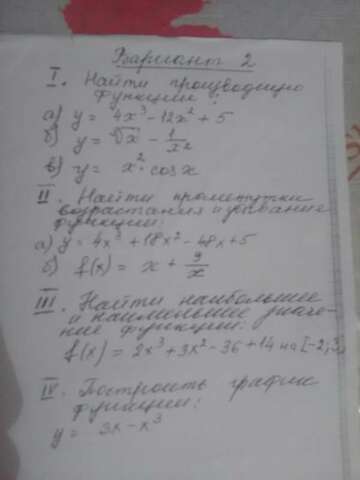 Вариант 2
I. Найти производную
функции:
а) y = 4x³ - 12x² + 5
б) y = √x - 1/x²
в) y = x² · cos x
II. Найти промежутки
возрастания и убывание
функции:
а) y = 4x³ + 18x² - 48x + 5
б) f(x) = x + 9/x
III. Найти наибольшее
и наименьшее значе-
ние функции:
f(x) = 2x³ + 3x² - 36 + 14 на [-2;3
IV. Построить график
функции:
y = 3x - x³